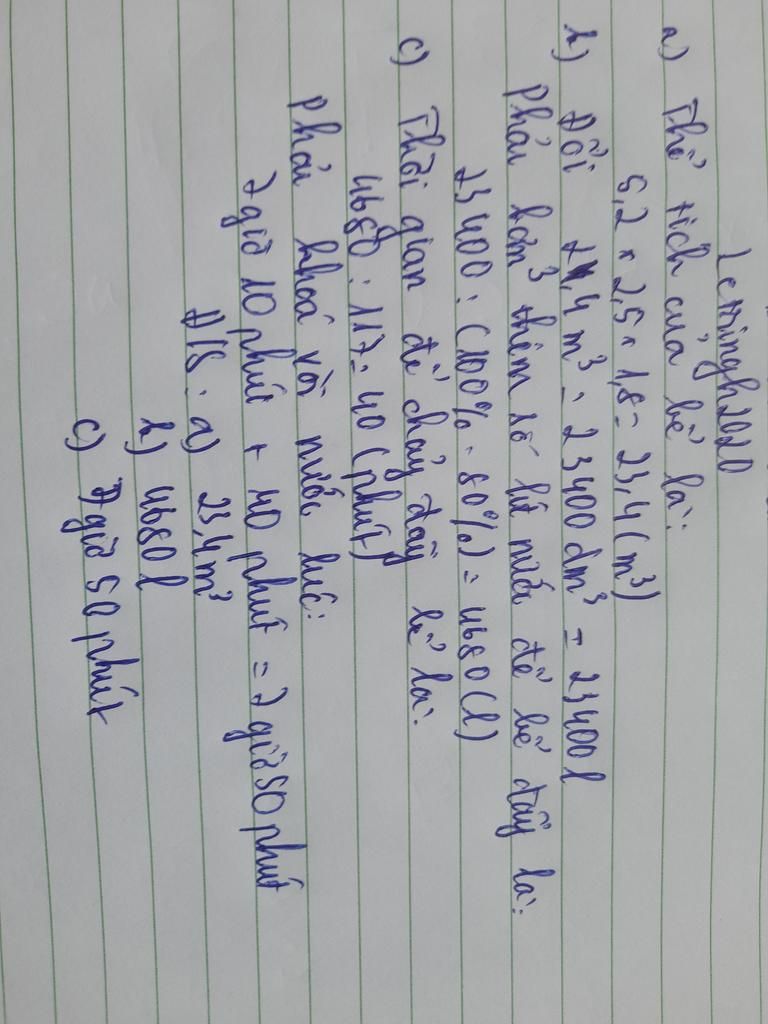 letringh2020
a) Thể tích của bể là:
5,2 × 2,5 × 1,8 = 23,4 (m³)
b) Đổi 23,4 m³ = 23400 dm³ = 23400 l
Phải bơm thêm số lít nước để bể đầy là:
23400 : (100% - 80%) = 4680 (l)
c) Thời gian để chảy đầy bể là:
4680 : 117 = 40 (phút)
Phải khoá vòi nước lúc:
7 giờ 10 phút + 40 phút = 7 giờ 50 phút
Đ/S: a) 23,4 m³
b) 4680 l
c) 7 giờ 50 phút